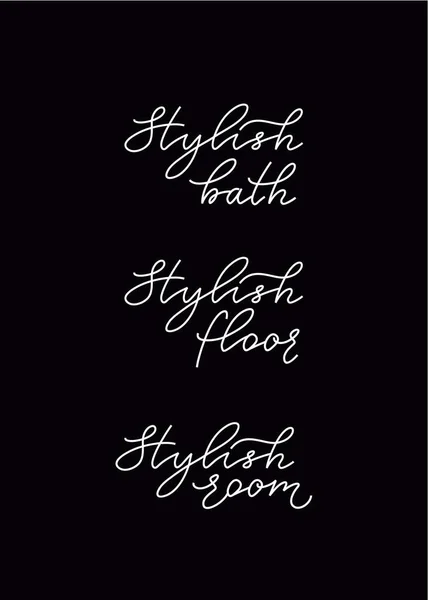 Stylish
bath
Stylish
floor
Stylish
room